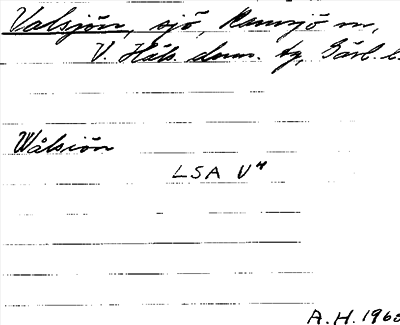 Valsjön, sjö, Ramsjö sn,
V. Häls. doms. tg, Gävl. l.
Wålsiön
LSA V⁴
A.H. 1960